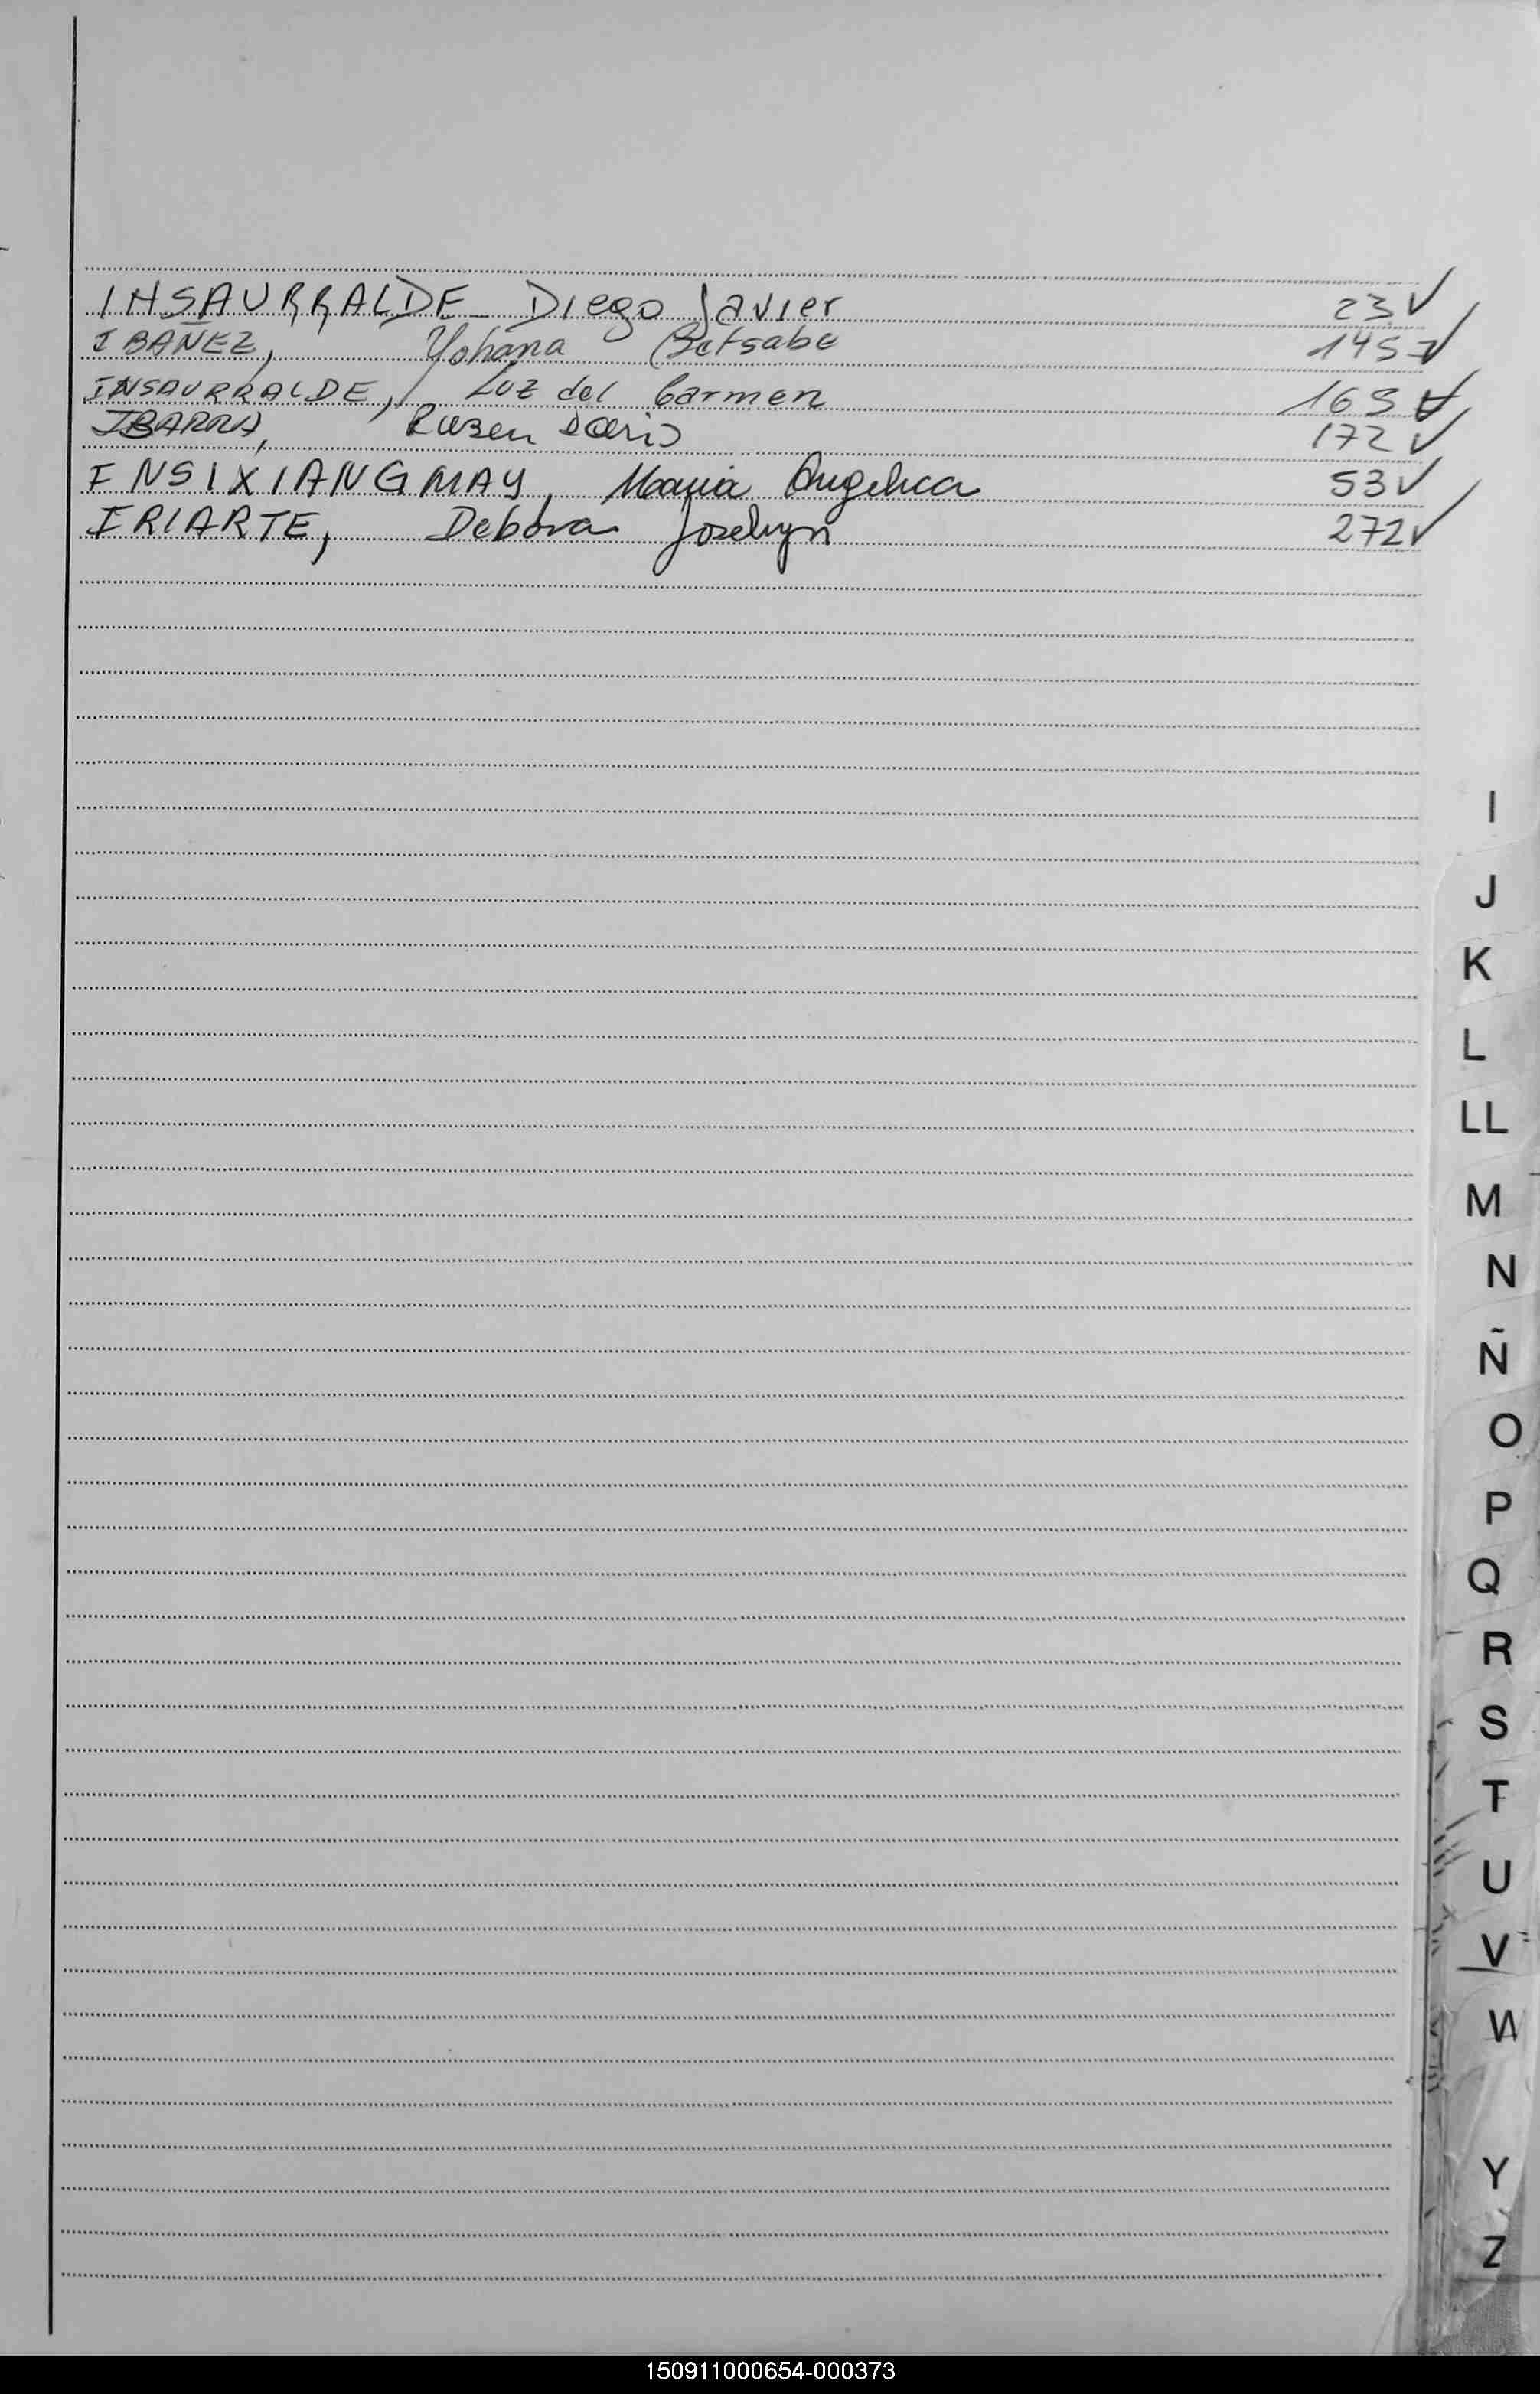 INSAURRALDE - Diego Javier 23 ✓
IBAÑEZ, Yohana Betsabe 145 ✓
INSAURRALDE, Luz del Carmen 169 ✓
IBARRA, Ruben Dario 172 ✓
INSIXIANGMAY, Maria Angelica 53 ✓
IRIARTE, Debora Joselyn 272 ✓
I
J
K
L
LL
M
N
Ñ
O
P
Q
R
S
T
U
V
W
Y
Z
150911000654-000373